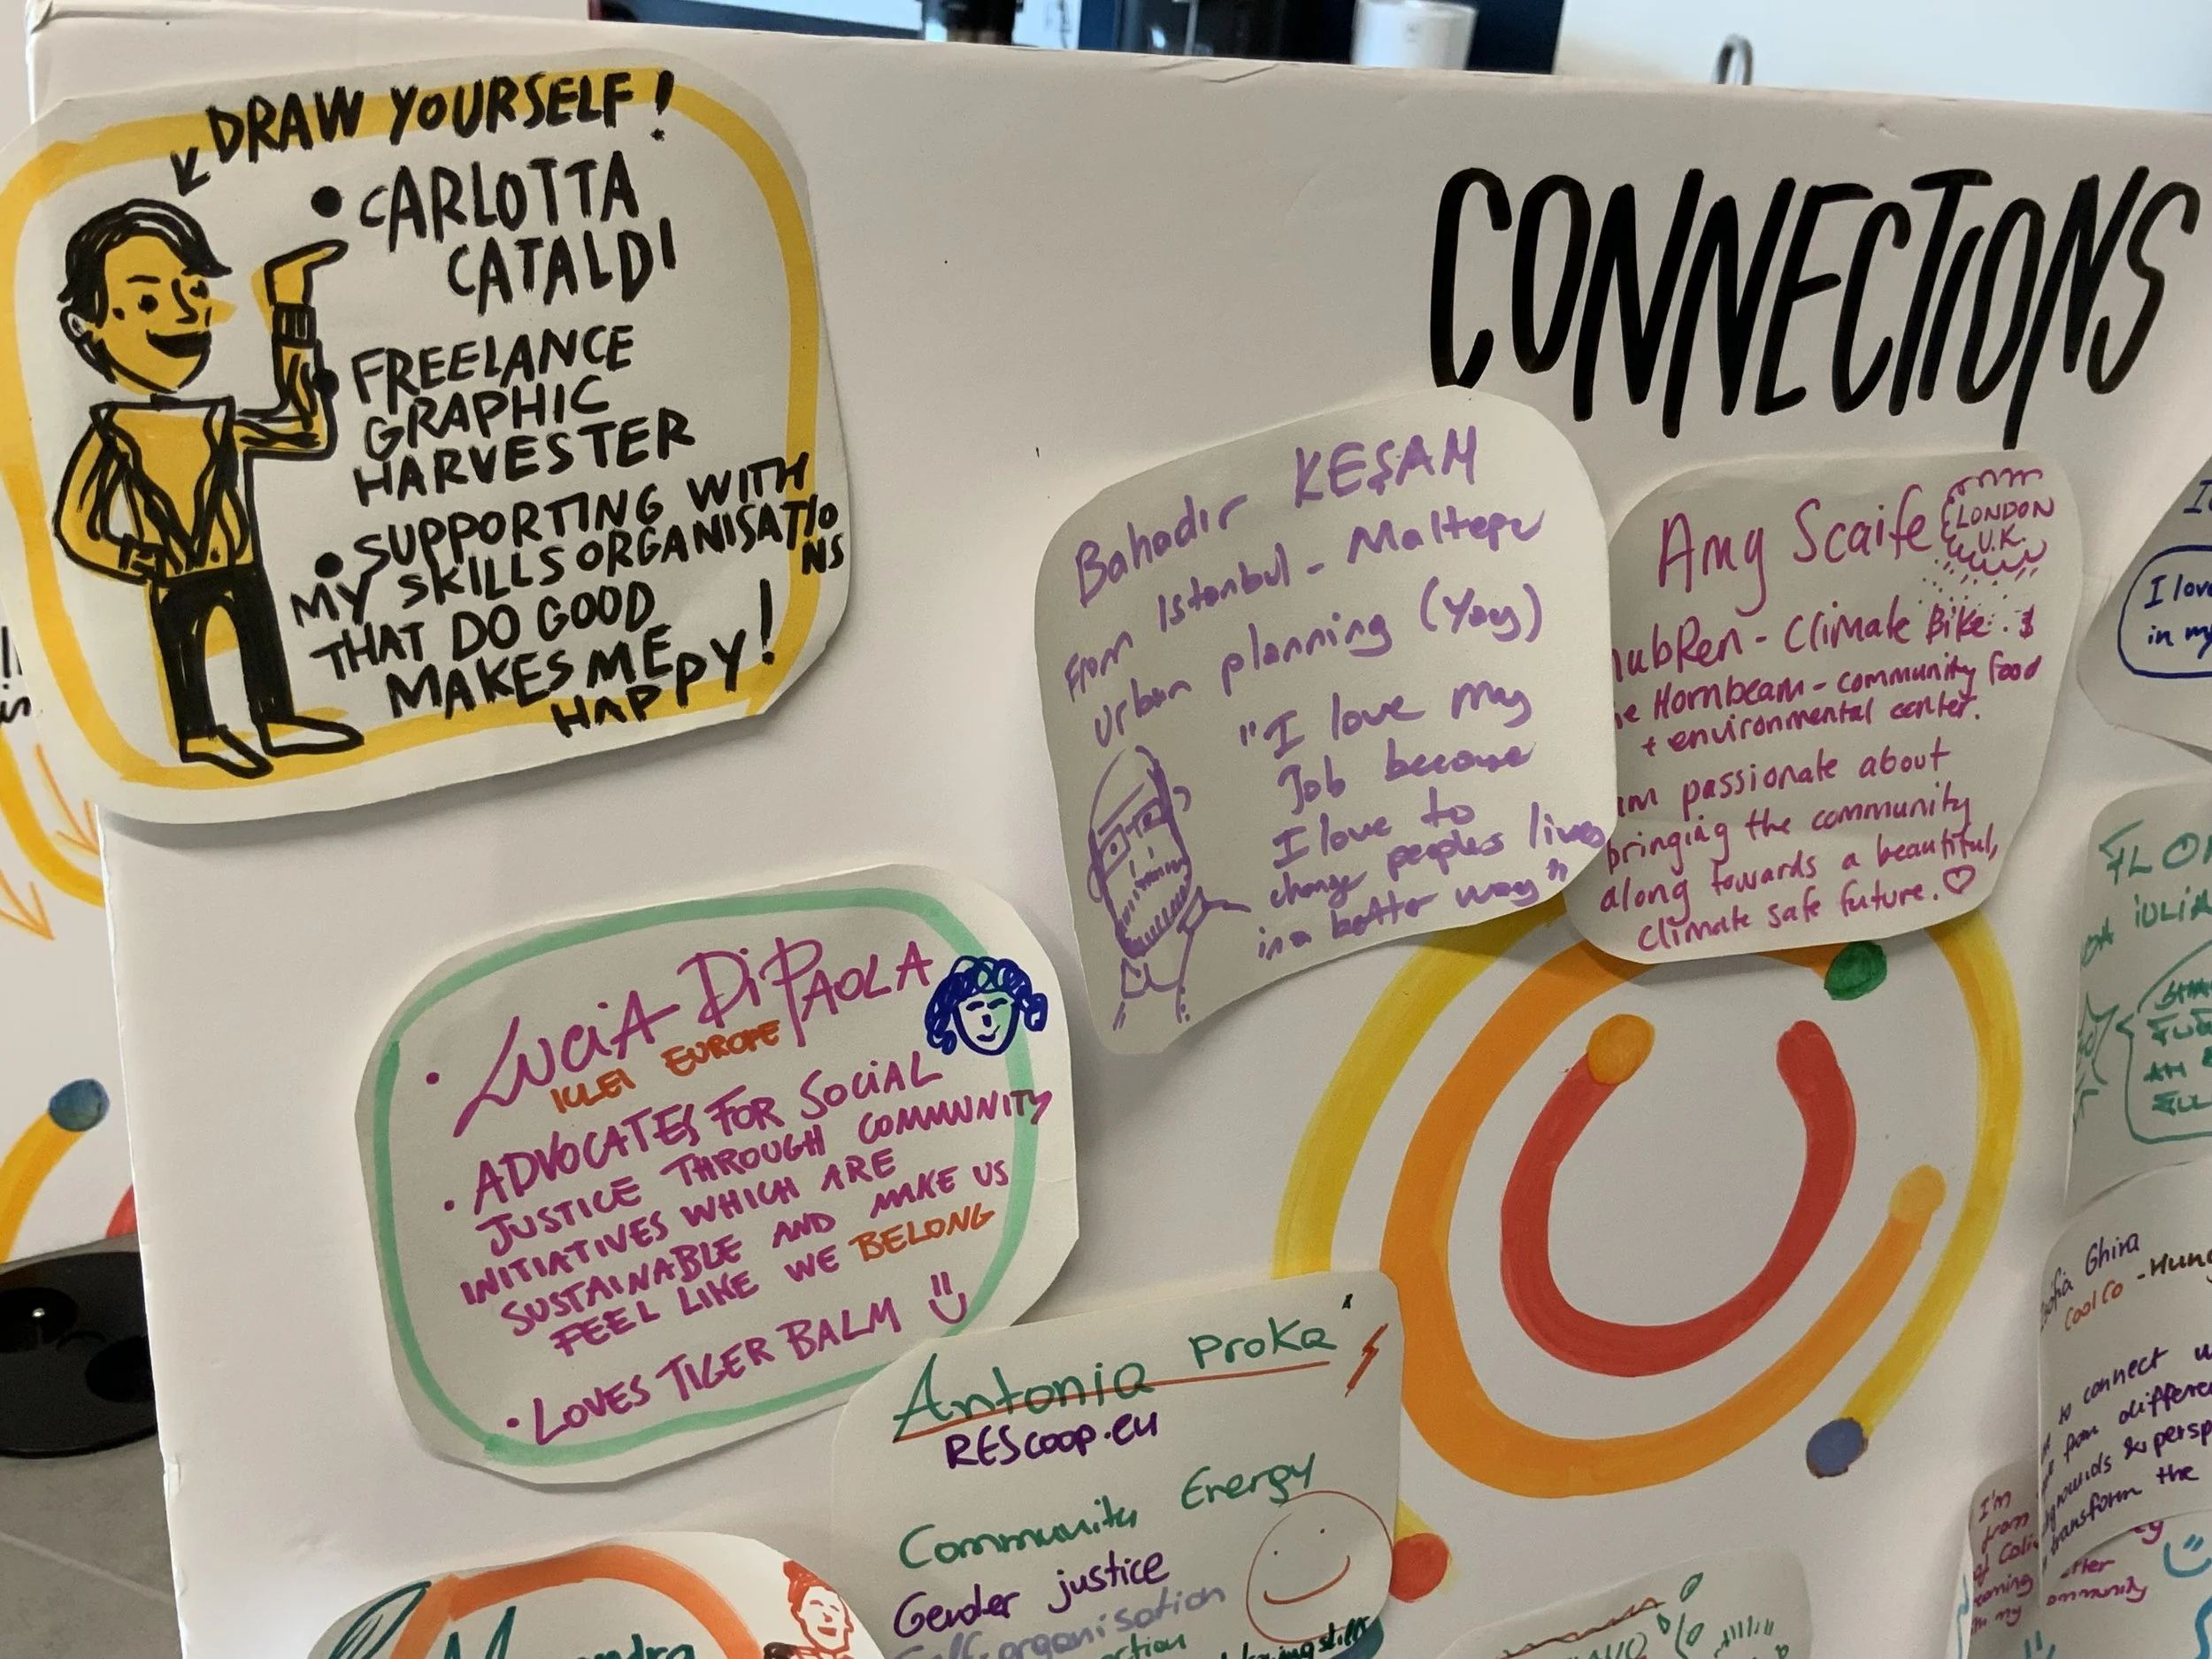 DRAW YOURSELF!
• CARLOTTA
CATALDI
FREELANCE
GRAPHIC
HARVESTER
• SUPPORTING WITH
MY SKILLS ORGANISATIO
NS
THAT DO GOOD
MAKES ME
HAPPY!
CONNECTIONS
Bahadır KEŞAM
From Istanbul - Maltepe
Urban planning (Yay)
"I love my
Job because
I love to
change peoples lives
in a better way"
Amy Scaife
LONDON
U.K.
ubRen - Climate Bike.
Hornbeam - community food
+ environmental center.
am passionate about
bringing the community
along towards a beautiful,
climate safe future. ♡
I love
in my
• LUCIA DI PAOLA
ICLEI EUROPE
• ADVOCATES FOR SOCIAL
JUSTICE THROUGH COMMUNITY
INITIATIVES WHICH ARE
SUSTAINABLE AND MAKE US
FEEL LIKE WE BELONG
• LOVES TIGER BALM
Antonia Proka
REScoop.eu
Community Energy
Gender justice
Self-organisation
IULIA
Ghira
CoolCo - Hung
to connect
from differe
grounds & persp
transform the
I'm
from
of
my
ommunity